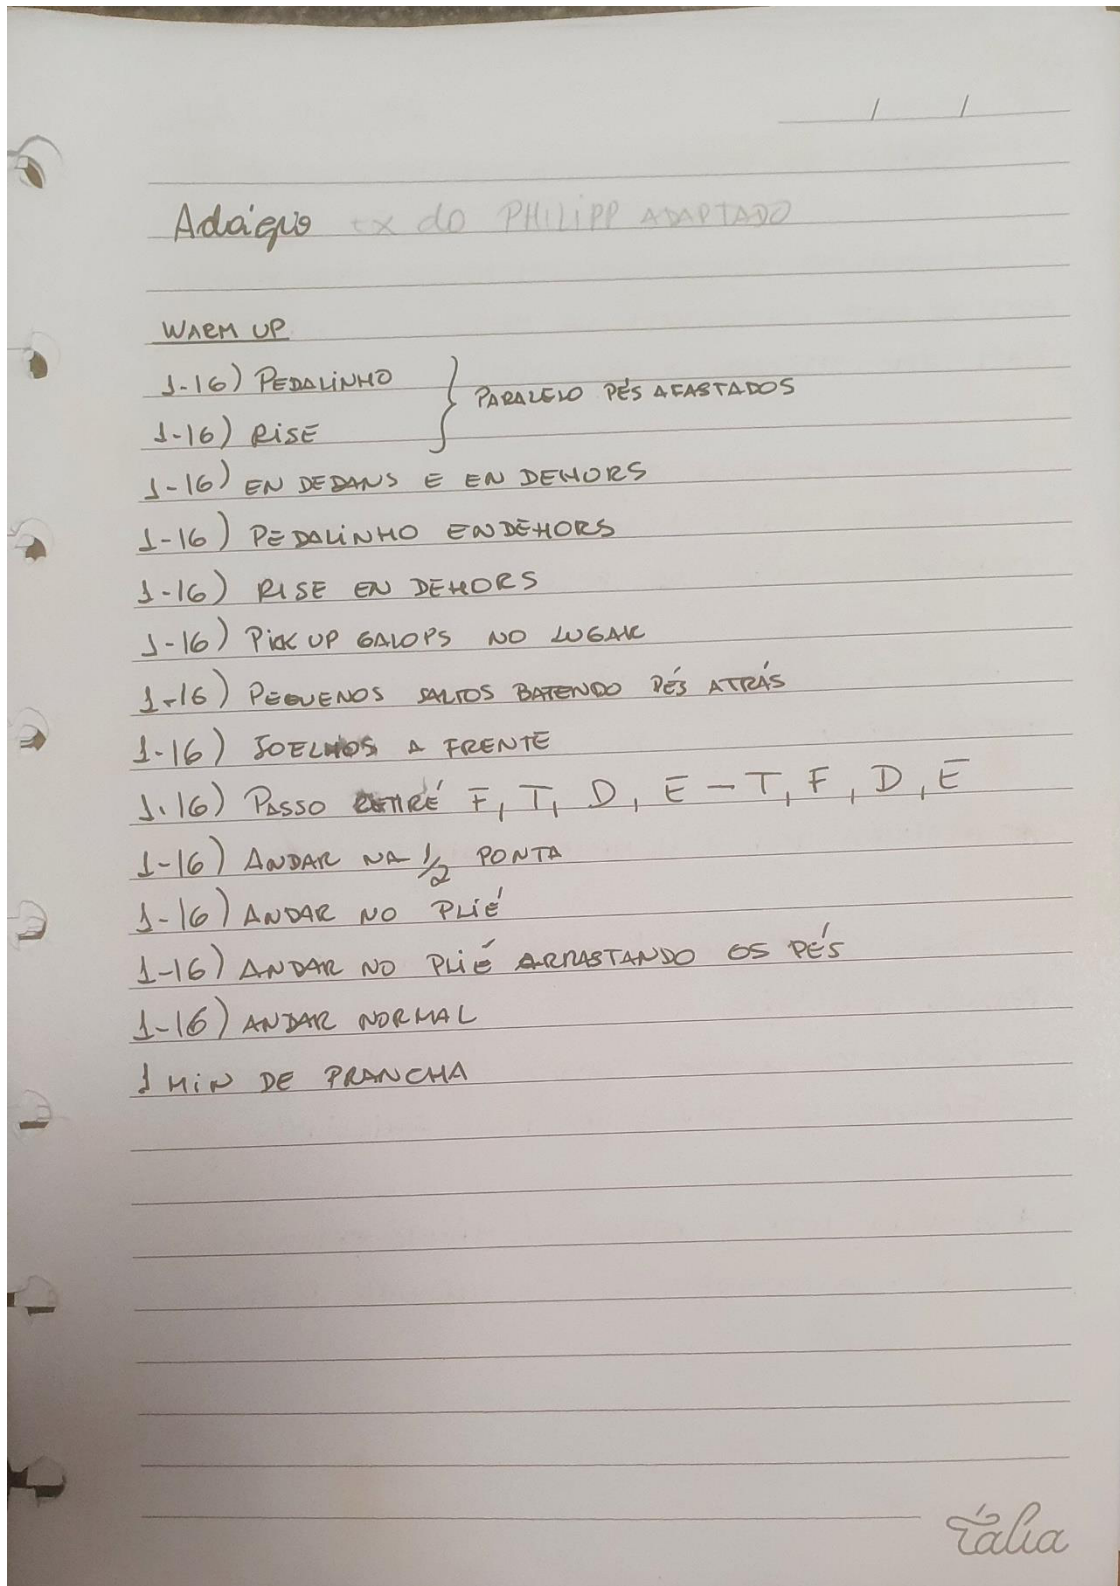 / /
Adágio ex do PHILIPP ADAPTADO
WARM UP
1-16) PEDALINHO
1-16) RISE
} PARALELO PÉS AFASTADOS
1-16) EN DEDANS E EN DEHORS
1-16) PEDALINHO ENDEHORS
1-16) RISE EN DEHORS
1-16) PICK UP GALOPS NO LUGAR
1-16) PEQUENOS SALTOS BATENDO PÉS ATRÁS
1-16) JOELHOS A FRENTE
1-16) PASSO RETIRÉ F, T, D, E - T, F, D, E
1-16) ANDAR NA 1/2 PONTA
1-16) ANDAR NO PLIÉ
1-16) ANDAR NO PLIÉ ARRASTANDO OS PÉS
1-16) ANDAR NORMAL
1 MIN DE PRANCHA
tália